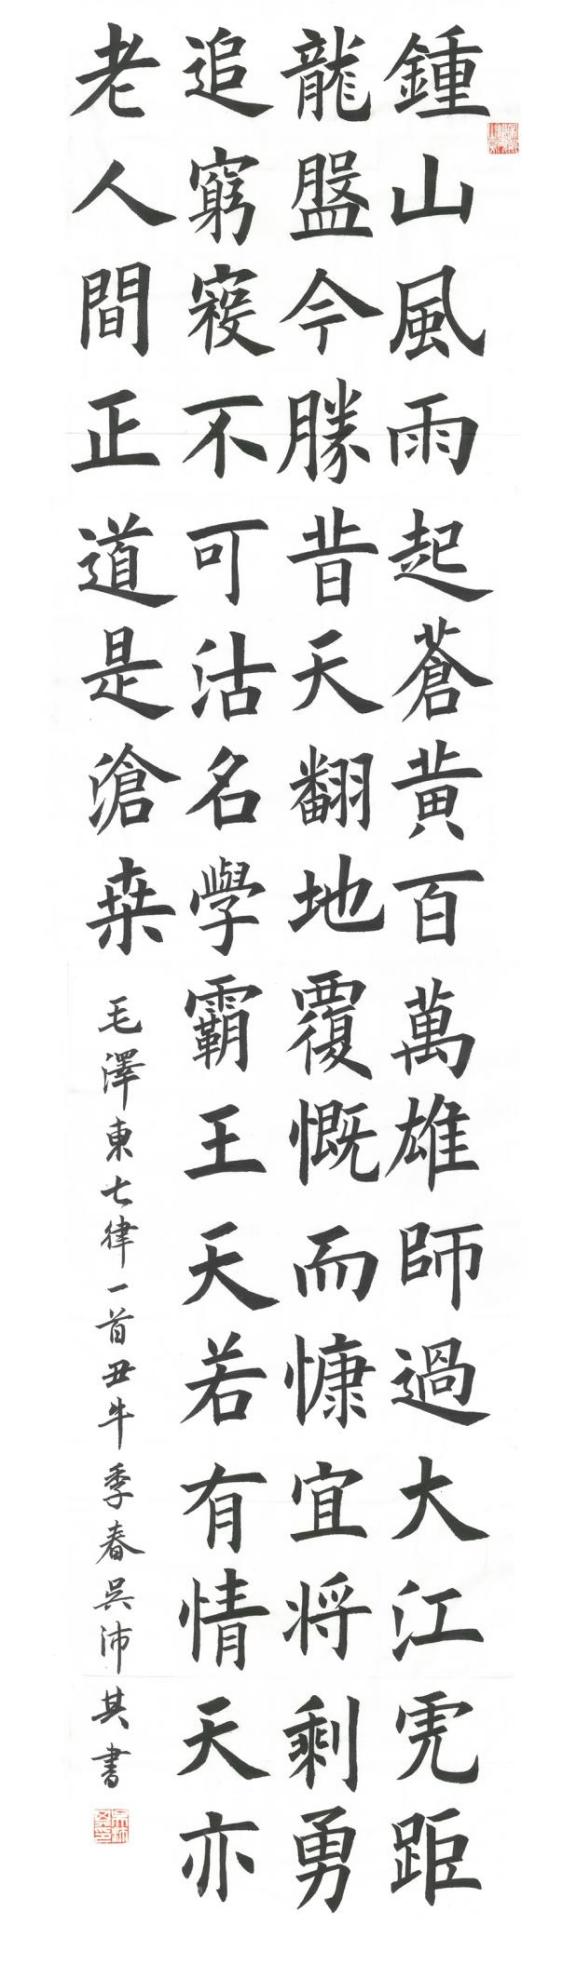 鍾山風雨起蒼黃百萬雄師過大江虎距
龍盤今勝昔天翻地覆慨而慷宜将剩勇
追窮寇不可沽名學霸王天若有情天亦
老人間正道是滄桒
毛澤東七律一首丑牛季春吳沛其書